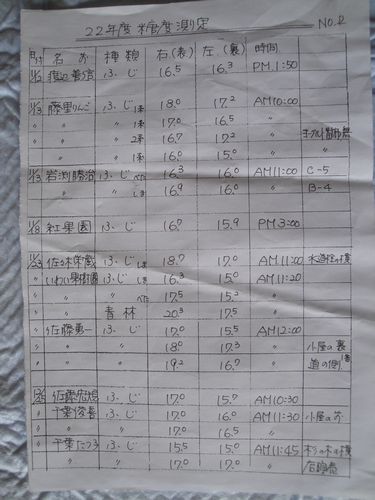 22年度 糖度測定 NO.2
月/日 名 前 種 類 右(表) 左(裏) 時間
11/12 渡辺 ふじ 16.5 16.3 PM.1:50
11/13 藤里りんご ふじ 1本 18.0 17.2 AM10:00
〃 〃 〃 17.0 16.5 〃
〃 〃 〃 2本 16.7 17.2 〃 ヨーグルト
〃 〃 〃 1本 16.0 15.0 〃
11/13 岩渕勝治 ふじ べた 16.3 16.0 AM11:00 C-5
〃 〃 しま 16.9 16.0 〃 B-4
11/18 紅果園 ふじ 16.7 15.9 PM3:00
11/23 佐々木栄蔵 ふじ しま 18.7 17.0 AM11:00 水道栓の横
〃 いわい果樹園 ふじ しま 16.3 15.0 AM11:20
〃 〃 べた 17.5 15.2 〃
〃 青林 20.3 17.5 〃
〃 佐藤勇一 ふじ 17.0 15.5 AM12:00
〃 〃 18.0 17.3 〃 小屋の裏
〃 〃 19.2 16.7 〃 道の側
佐藤 ふじ 17.0 15.7 AM10:30
〃 千葉 ふじ 17.0 16.0 AM11:30 小屋の前
〃 〃 17.0 16.5 〃
〃 千葉 ふじ 15.5 15.0 AM11:45 の木の横
〃 〃 17.0 17.0 〃